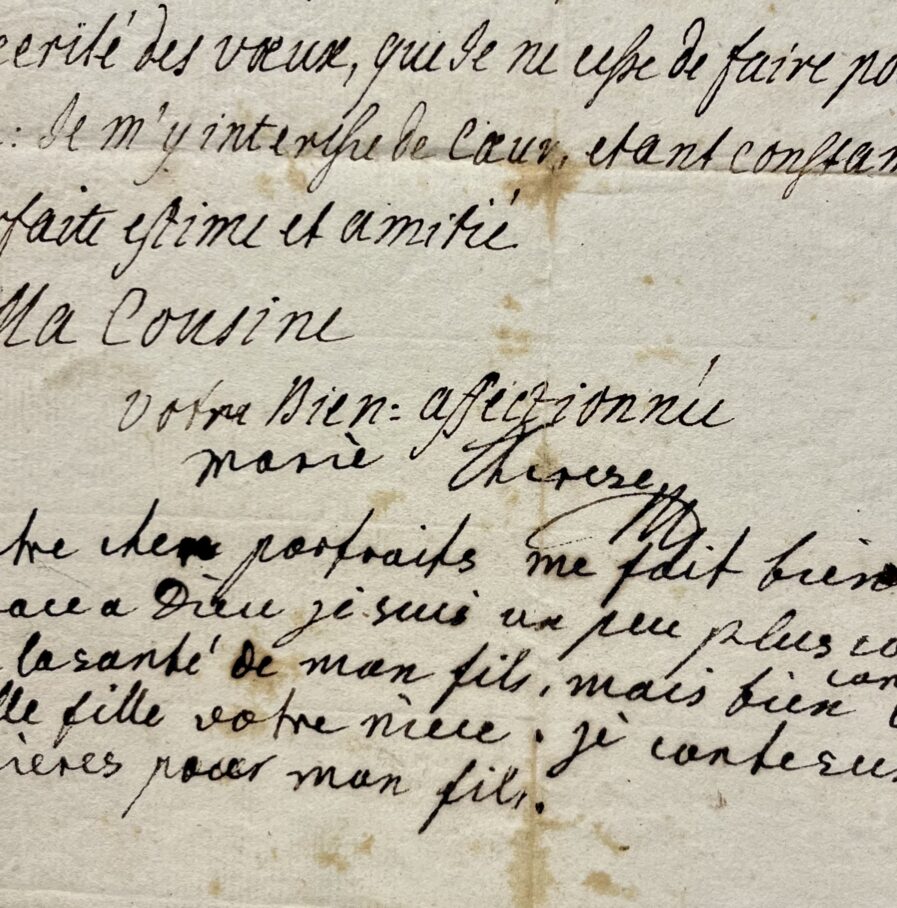 cerité des vœux, que Je ne cesse de faire po
: Je m'y interesse de Cœur, etant constam
rfaite estime et amitié
Ma Cousine
votre Bien = affectionnée
marie Therese
tre cher portraits me fait bien
race a Dieu je suis un peu plus co
la santé de mon fils, mais bien
con
lle fille votre niece. je conte sur
ieres pour mon fils.